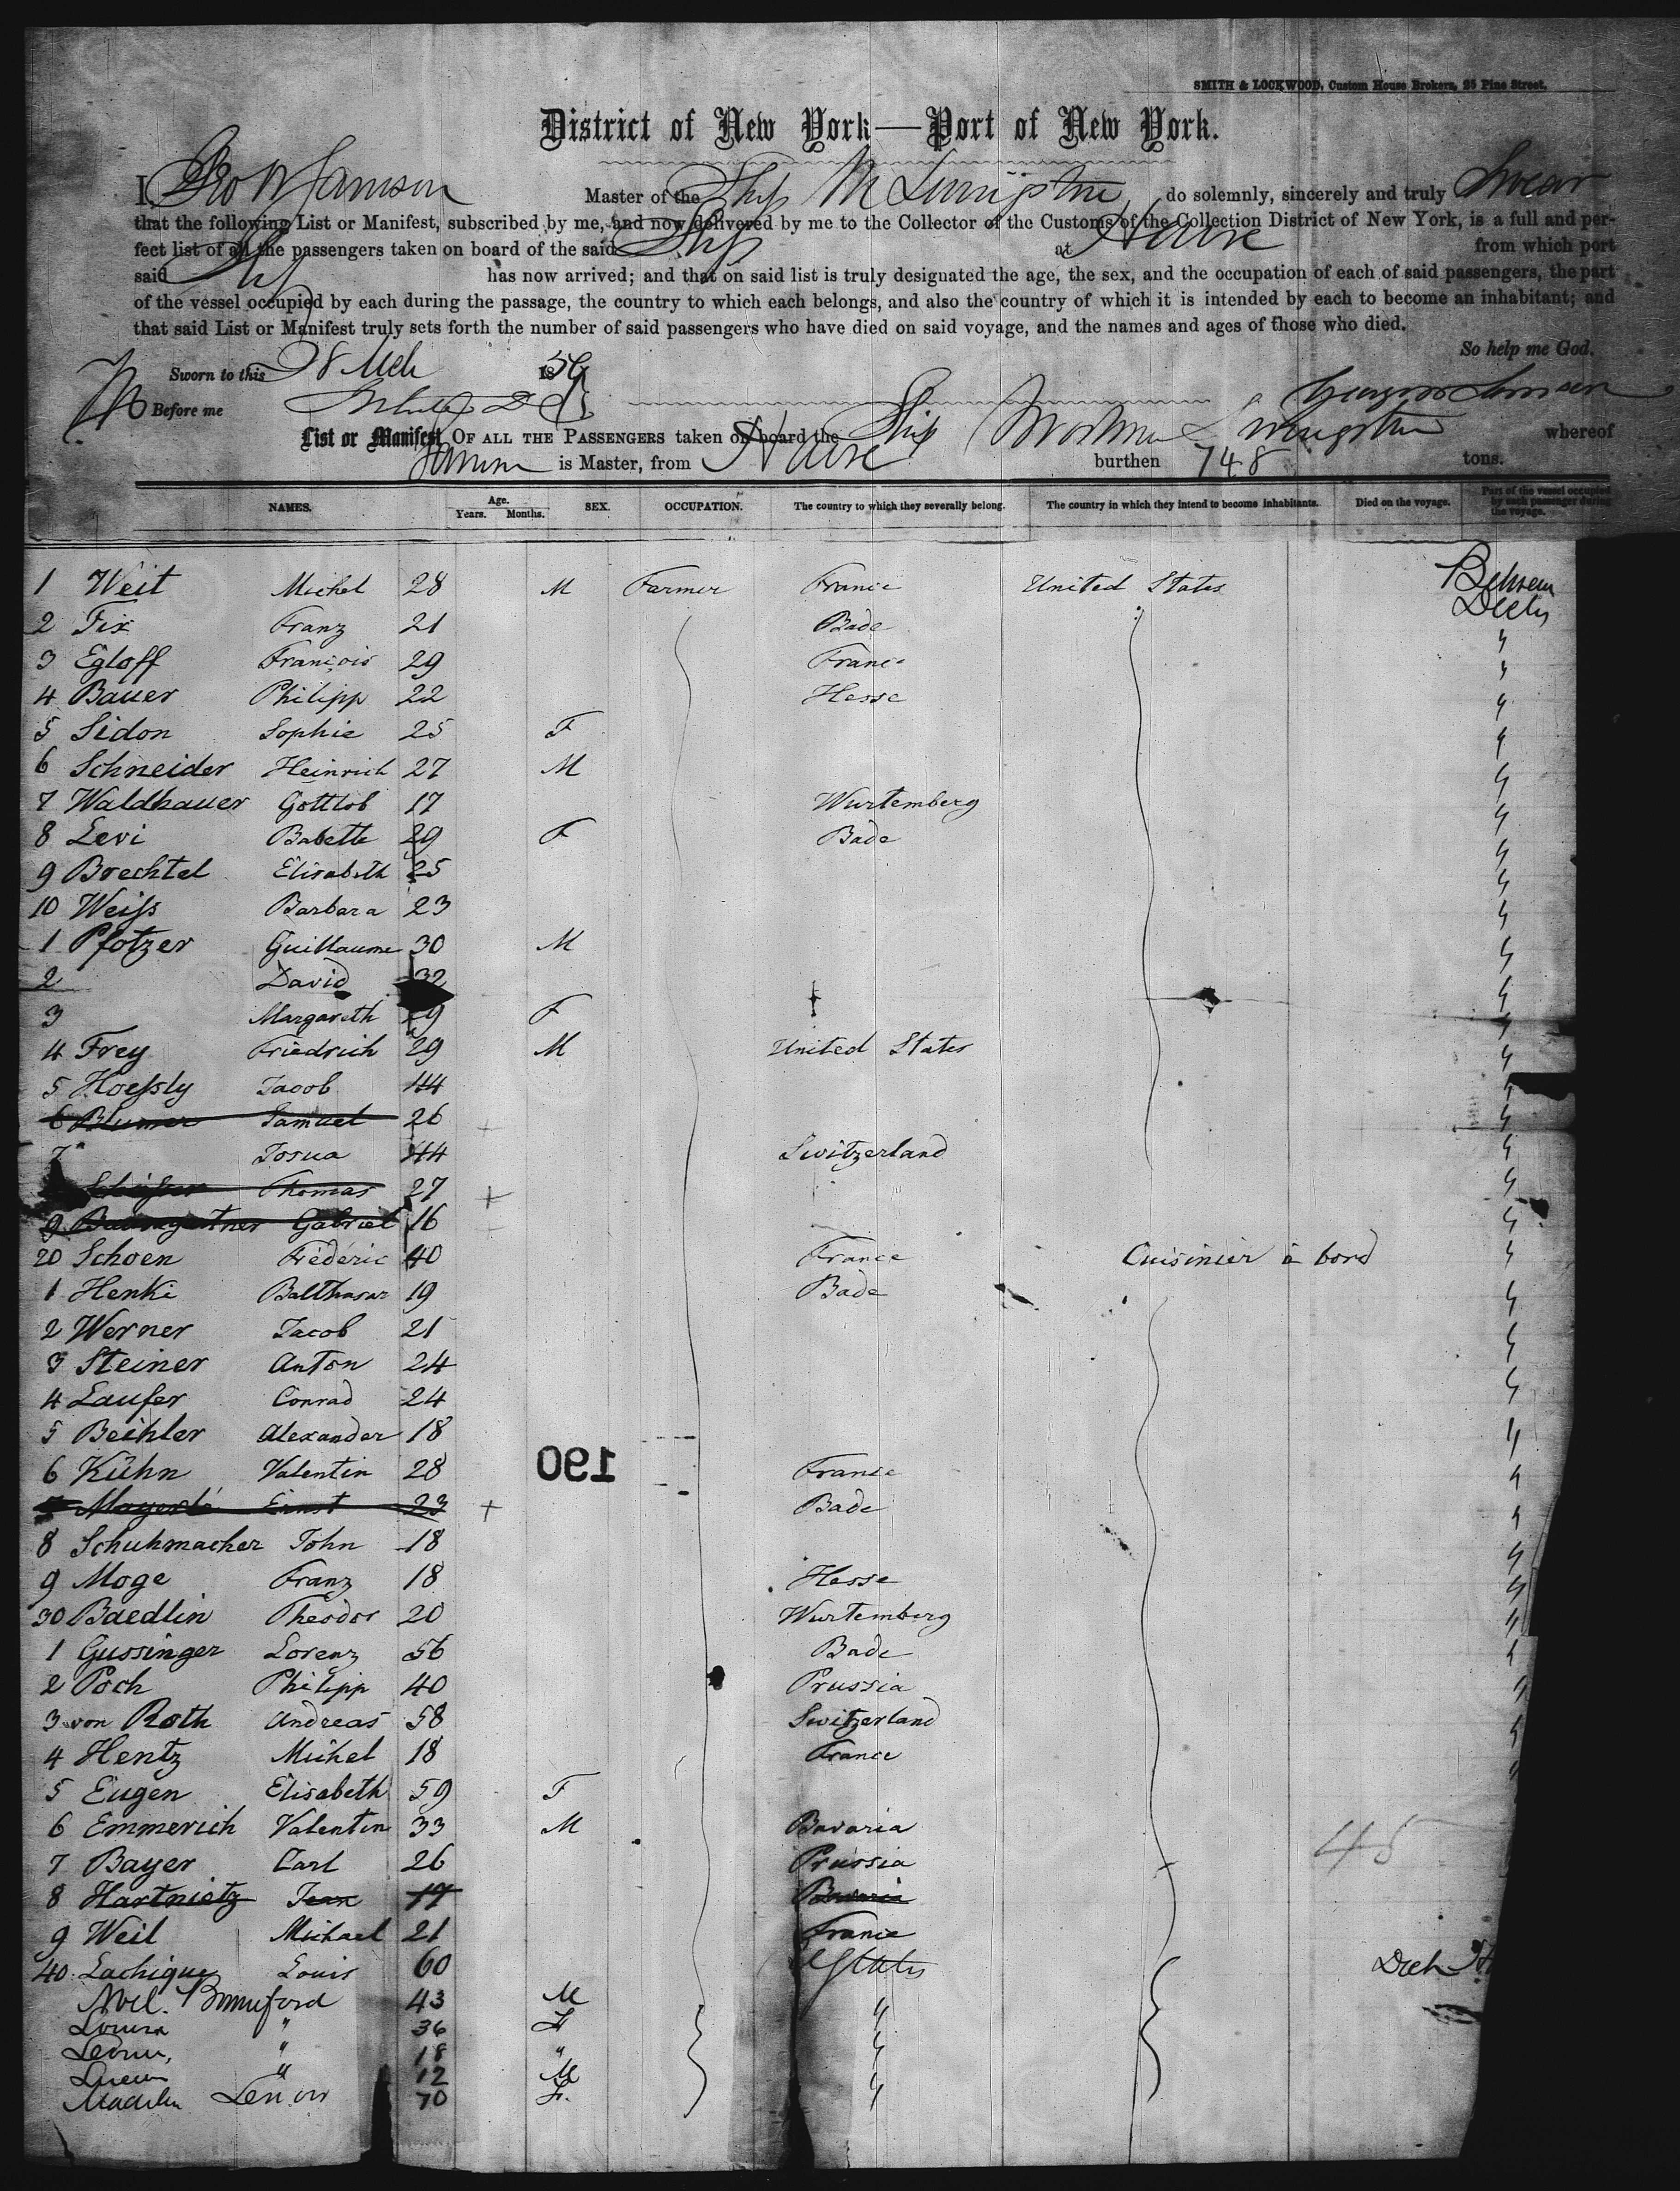 SMITH & LOCKWOOD, Custom House Brokers, 25 Pine Street.
District of New York—Port of New York.
I, Geo W Samson Master of the Ship M Livingston do solemnly, sincerely and truly Swear
that the following List or Manifest, subscribed by me, and now delivered by me to the Collector of the Customs of the Collection District of New York, is a full and per-
fect list of all the passengers taken on board of the said Ship at Havre from which port
said Ship has now arrived; and that on said list is truly designated the age, the sex, and the occupation of each of said passengers, the part
of the vessel occupied by each during the passage, the country to which each belongs, and also the country of which it is intended by each to become an inhabitant; and
that said List or Manifest truly sets forth the number of said passengers who have died on said voyage, and the names and ages of those who died.
So help me God.
Sworn to this 28 Mch 18
Before me
List or Manifest OF ALL THE PASSENGERS taken on board the Ship Livingston whereof
is Master, from Havre burthen 748 tons.
NAMES. Age. Years. Months. SEX. OCCUPATION. The country to which they severally belong. The country in which they intend to become inhabitants. Died on the voyage. Part of the vessel occupied by each passenger during the voyage.
1 Weit Michel 28 M Farmer France United States Between Decks
2 Fix Franz 21 Bade "
3 Egloff François 29 France "
4 Bauer Philipp 22 Hesse "
5 Sidon Sophie 25 F "
6 Schneider Heinrich 27 M "
7 Waldhauer Gottlob 17 Wurtemberg "
8 Levi Babette 29 F Bade "
9 Brechtel Elisabeth 25 "
10 Weiss Barbara 23 "
1 Pfotzer Guillaume 30 M "
2 David 32 "
3 Margareth 29 F "
4 Frey Friedrich 29 M United States "
5 Hoessly Jacob 44 "
6 Blumer Samuel 26 "
7 " Josua 44 Switzerland "
Thomas 27 + "
9 Baumgartner Gabriel 16 "
20 Schoen Fréderic 40 France Cuisinier à bord "
1 Henki Balthasar 19 Bade "
2 Werner Jacob 21 "
3 Steiner Anton 24 "
4 Laufer Conrad 24 "
5 Beihler Alexander 18 "
6 Kühn Valentin 28 190 France "
Mayerlé Ernst 23 + Bade "
8 Schuhmacher John 18 "
9 Moge Franz 18 Hesse "
30 Baedlin Theodor 20 Wurtemberg "
1 Gussinger Lorenz 56 Bade "
2 Poch Philipp 40 Prussia "
3 von Roth Andreas 58 Switzerland "
4 Hentz Michel 18 France "
5 Eugen Elisabeth 59 F
6 Emmerich Valentin 33 M Bavaria
7 Bayer Carl 26 Prussia 45
8 Hartnietz Jean 17 Bavaria
9 Weil Michael 21 France
40 Lachique Louis 60 States Deck
Noel. 43 M "
Louisa " 36 F "
" 18 " "
" 12 M "
Lenoir 70 F. "